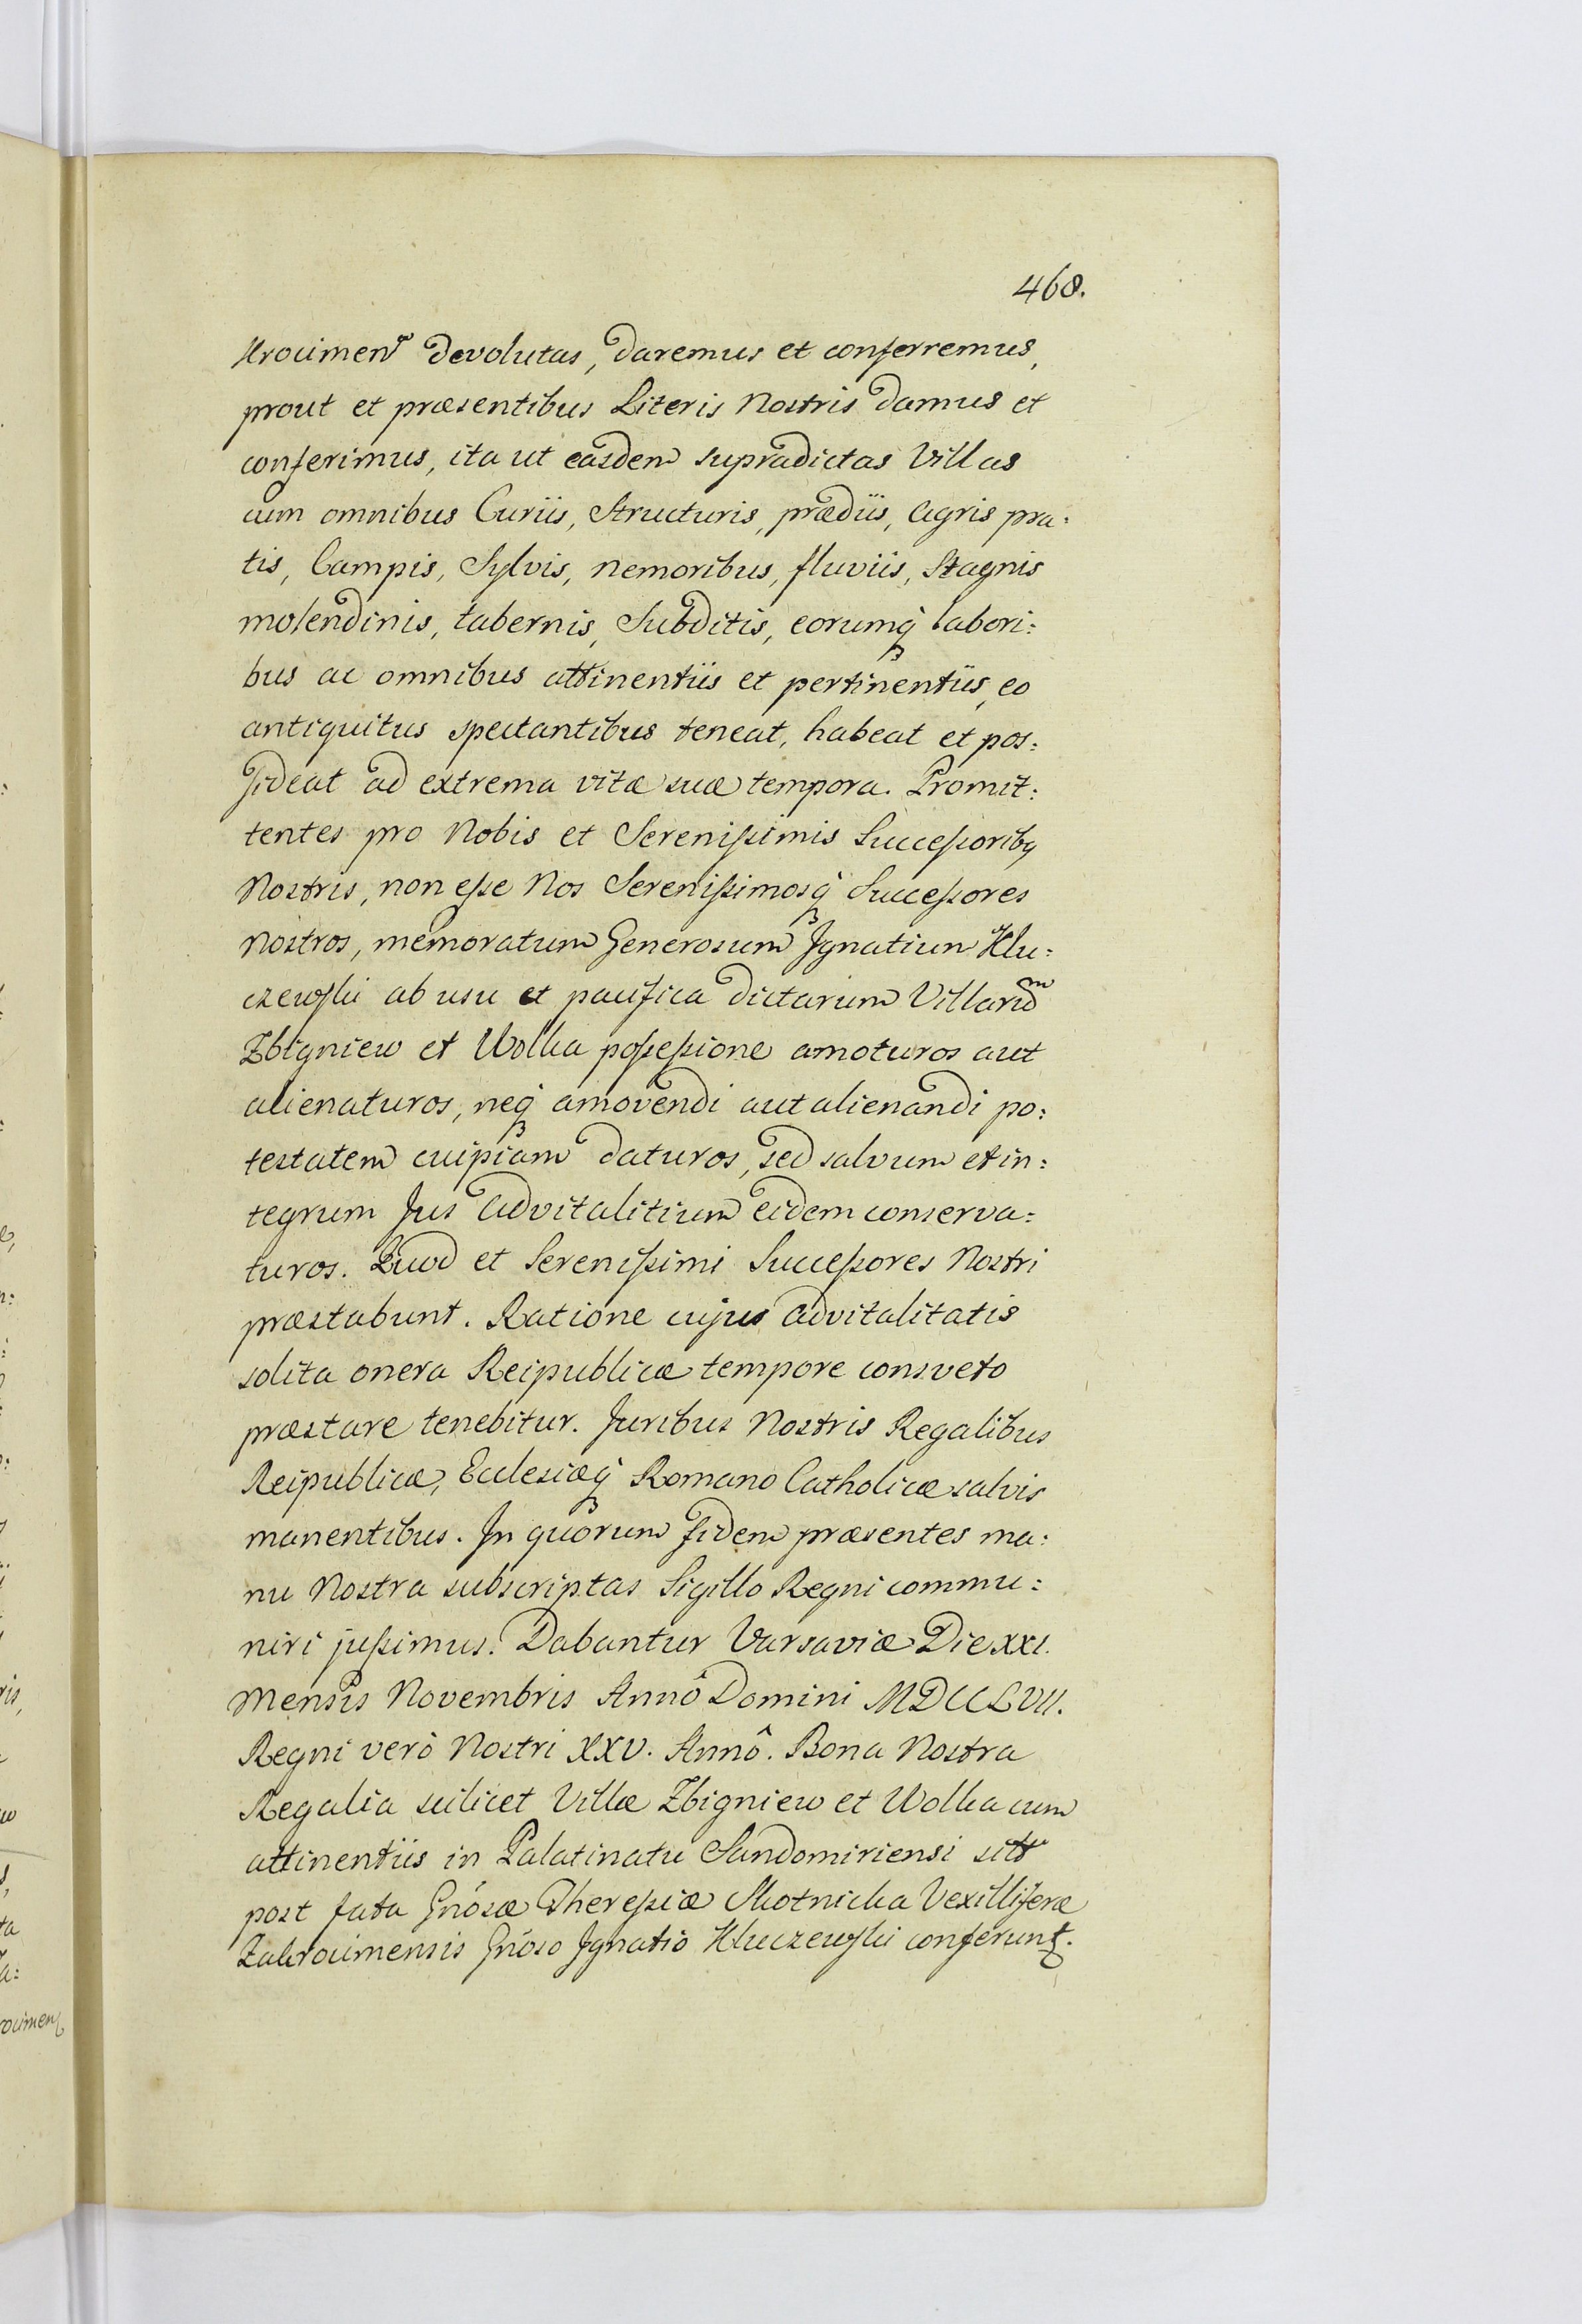 468.
krocimen devolutas, daremus et conferremus,
prout et præsentibus Literis Nostris damus et
conferimus, ita ut easdem supradictas Villas
cum omnibus Curiis, Structuris, prædiis, Agris pra:
tis, Campis, Sylvis, nemoribus, fluviis, Stagnis
molendinis, tabernis, Subditis, eorumq labori:
bus ac omnibus attinentiis et pertinentiis, eo
antiquitus spectantibus teneat, habeat et pos:
sideat ad extrema vitæ suæ tempora. Promit:
tentes pro Nobis et Serenissimis Successoribq
Nostris, non esse Nos Serenissimosq Successores
Nostros, memoratum Generosum Ignatium Klu:
czewski ab usu et pacifica dictarum Villarum
Zbigniew et Wolka possessione amoturos aut
alienaturos, neq amovendi aut alienandi po:
testatem cuipiam daturos, sed salvum et in:
tegrum Jus Advitalitium eidem conserva:
turos. Quod et Serenissimi Successores Nostri
præstabunt. Ratione cujus Advitalitatis
solita onera Reipublicæ tempore consveto
præstare tenebitur. Juribus Nostris Regalibus
Reipublicæ, Ecclesiæq Romano Catholicæ salvis
manentibus. In quorum fidem præsentes ma:
nu Nostra subscriptas Sigillo Regni commu:
niri jussimus. Dabantur Varsaviæ Die XXI.
Mensis Novembris Annô Domini MDCCLVII.
Regni verò Nostri XXV. Annô. Bona Nostra
Regalia scilicet Villæ Zbigniew et Wolka cum
attinentiis in Palatinatu Sandomiriensi sitt
post fata Gnósæ Theressiæ Skotnicka Vexilliferæ
Zakrocimensis Gnóso Ignatio Kluczewski conferunt.